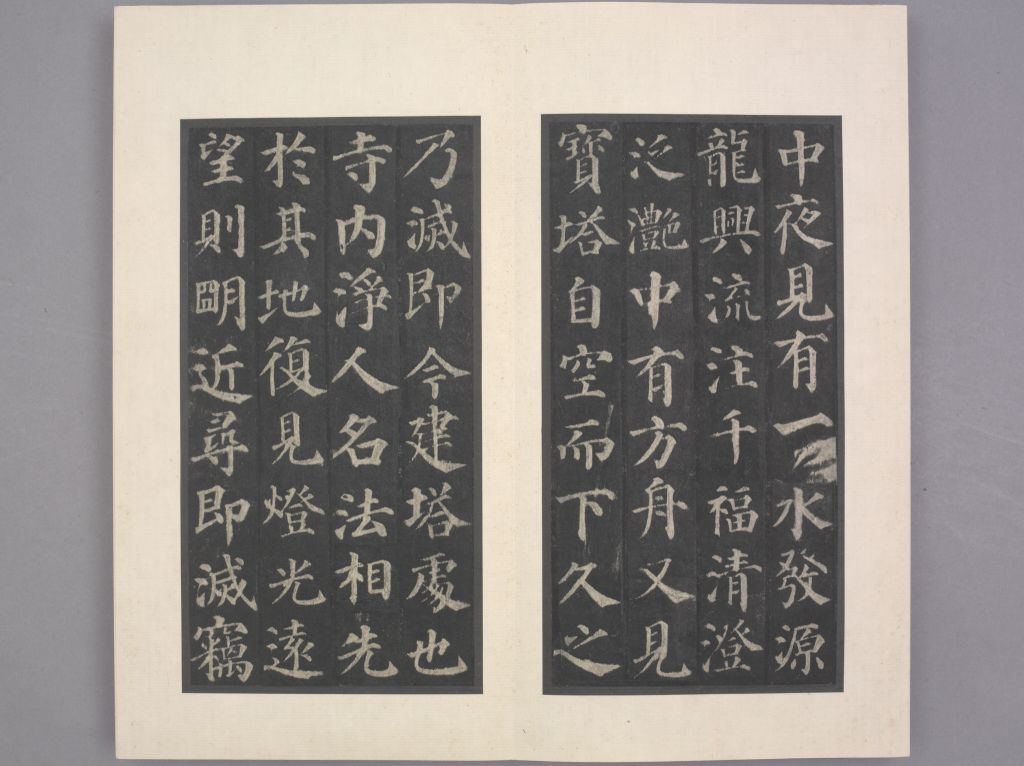 中夜見有一水發源
龍興流注千福清澄
泛灧中有方舟又見
寶塔自空而下久之
乃滅即今建塔處也
寺内淨人名法相先
於其地復見燈光遠
望則朙近尋即滅竊